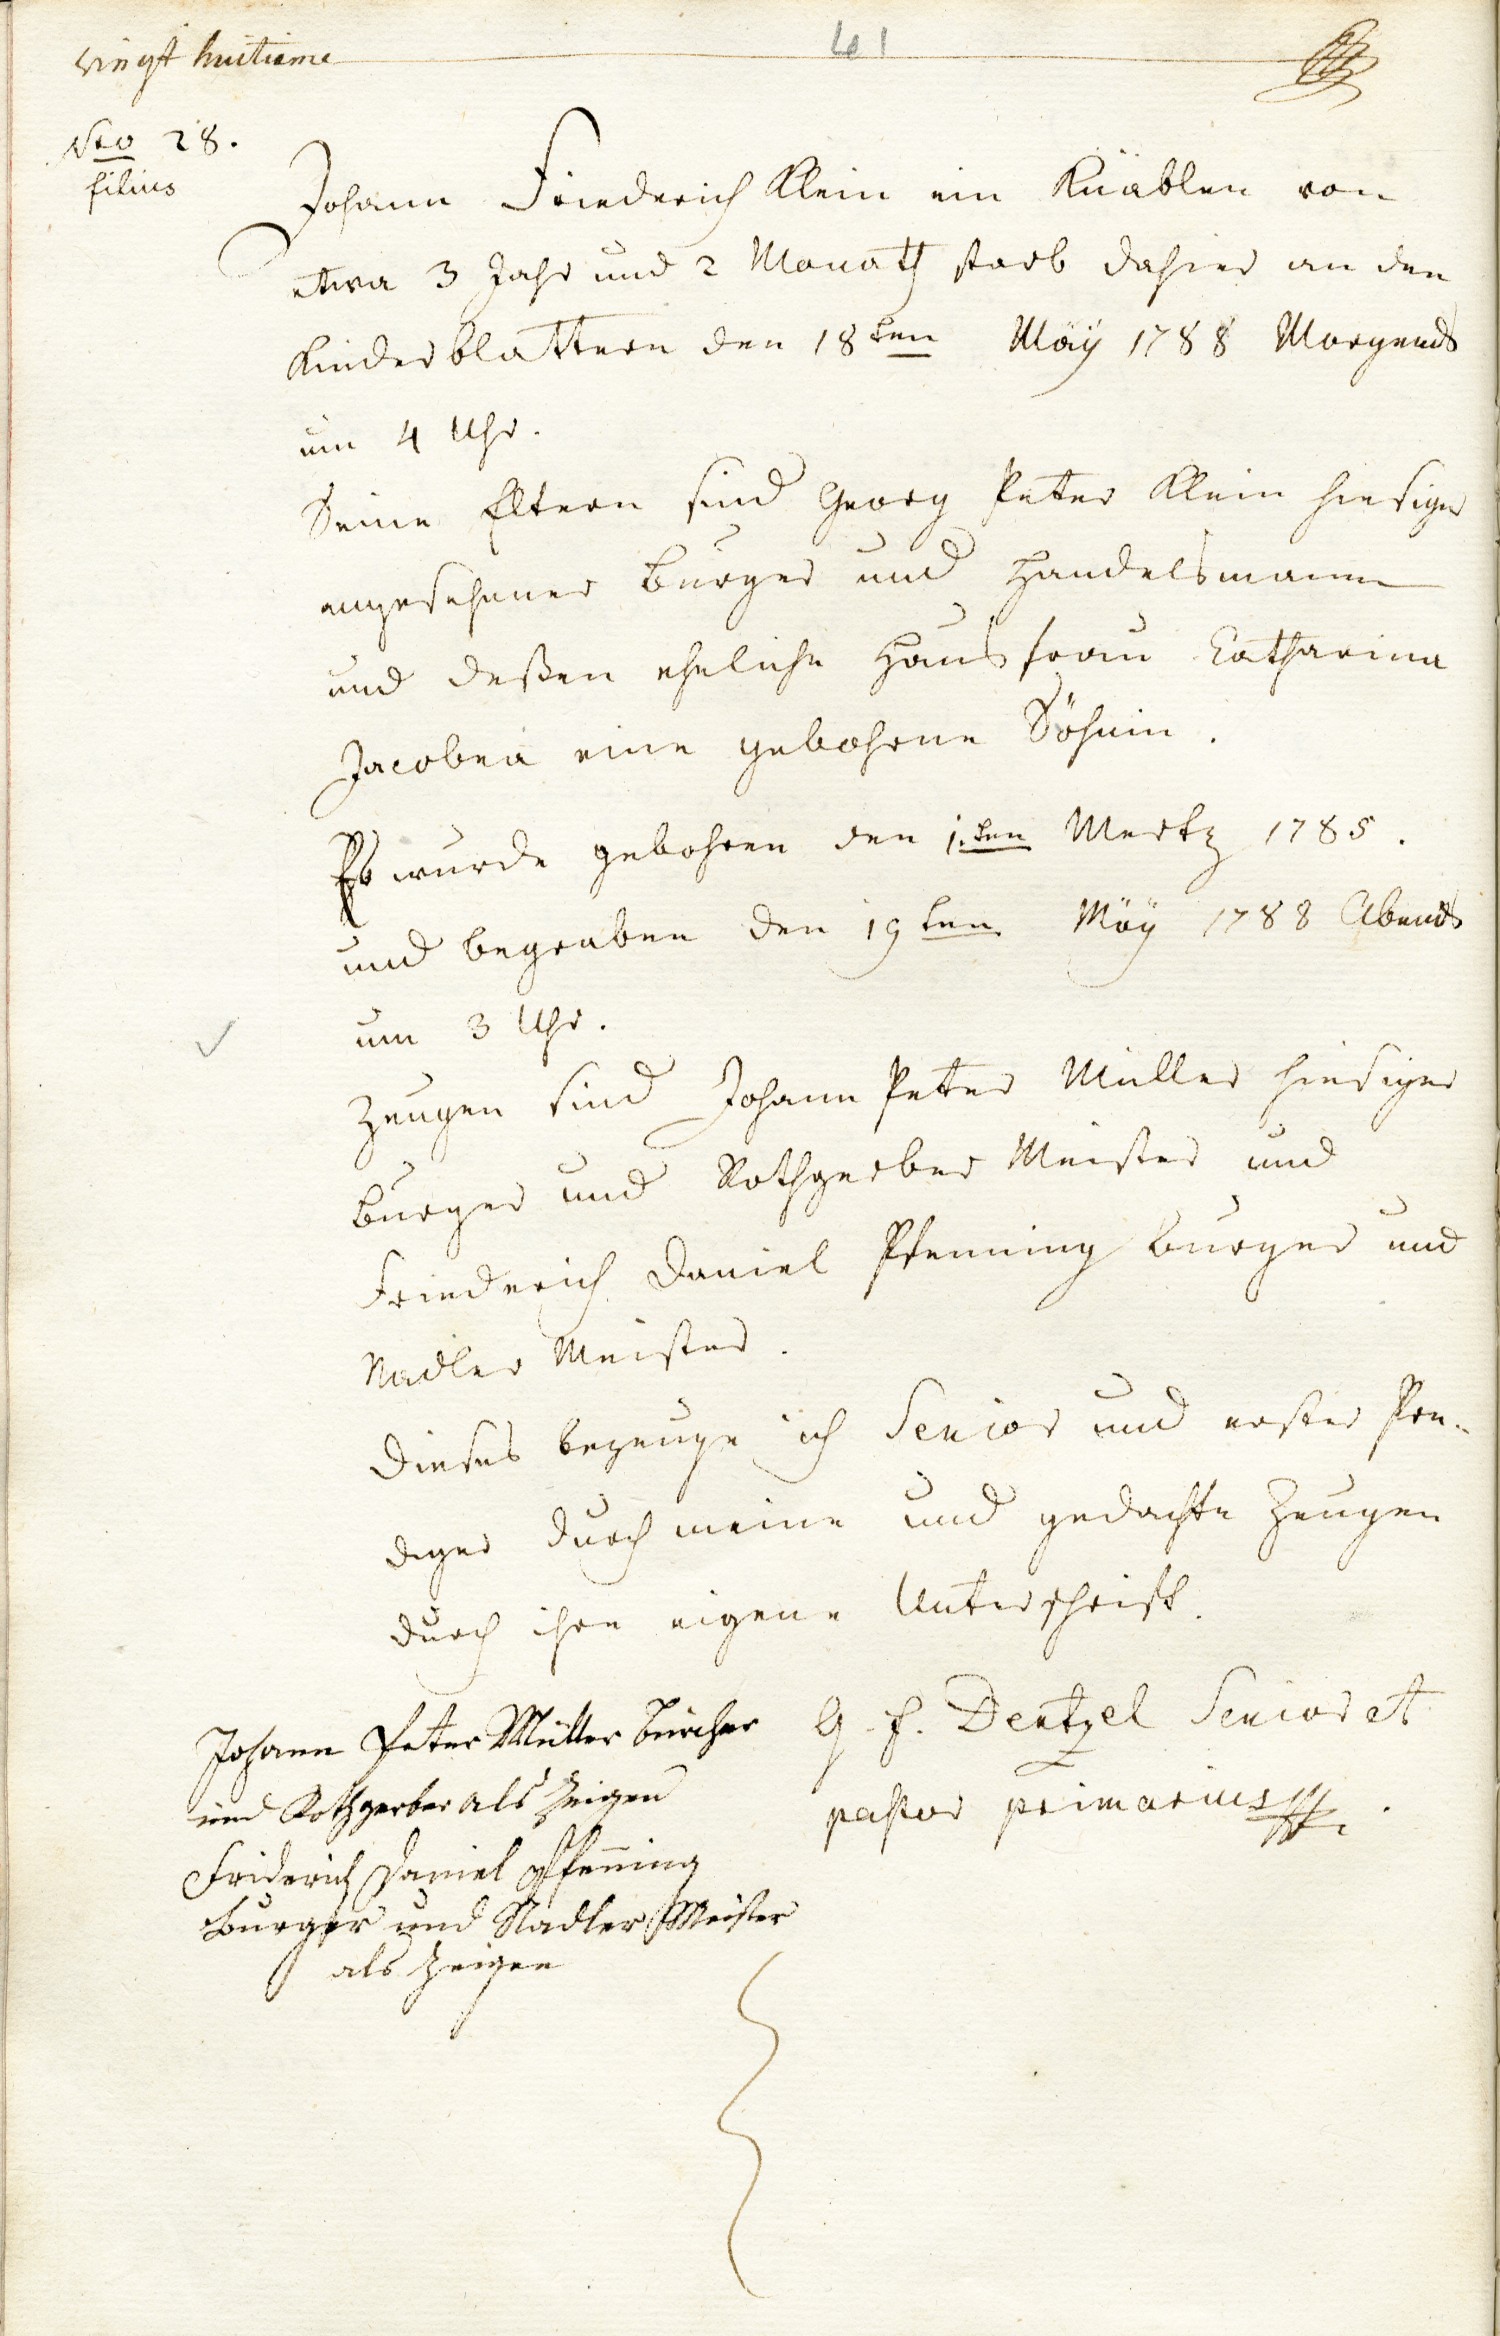 vingt huitieme
61
Nro 28.
filius
Johann Friederich Klein ein Knäblen von
etwa 3 Jahr und 2 Monath starb dahier an den
Kinderblattern den 18ten Maÿ 1788 Morgends
um 4 Uhr.
Seine Eltern sind Georg Peter Klein hiesiger
angesehener Burger und Handelsmann
und deßen eheliche Hausfrau Catharina
Jacobea eine gebohrne Söhnin.
Es wurde gebohren den 1.ten Mertz 1785.
und begraben den 19ten Maÿ 1788 Abends
um 3 Uhr.
Zeugen sind Johann Peter Müller hiesiger
Burger und Rothgerber Meister und
Friederich Daniel Pfenning Burger und
Nadler Meister.
Dieses bezeuge ich Senior und erster Pre-
diger durch meine und gedachte Zeugen
durch ihre eigene Unterschrift.
G. F. Dentzel Senior et
pastor primarius
Johann Peter Müller bürcher
und Rothgerber als Zeigen
Friderich Daniel Pfenning
Burger und Nadler Meister
als Zeigen